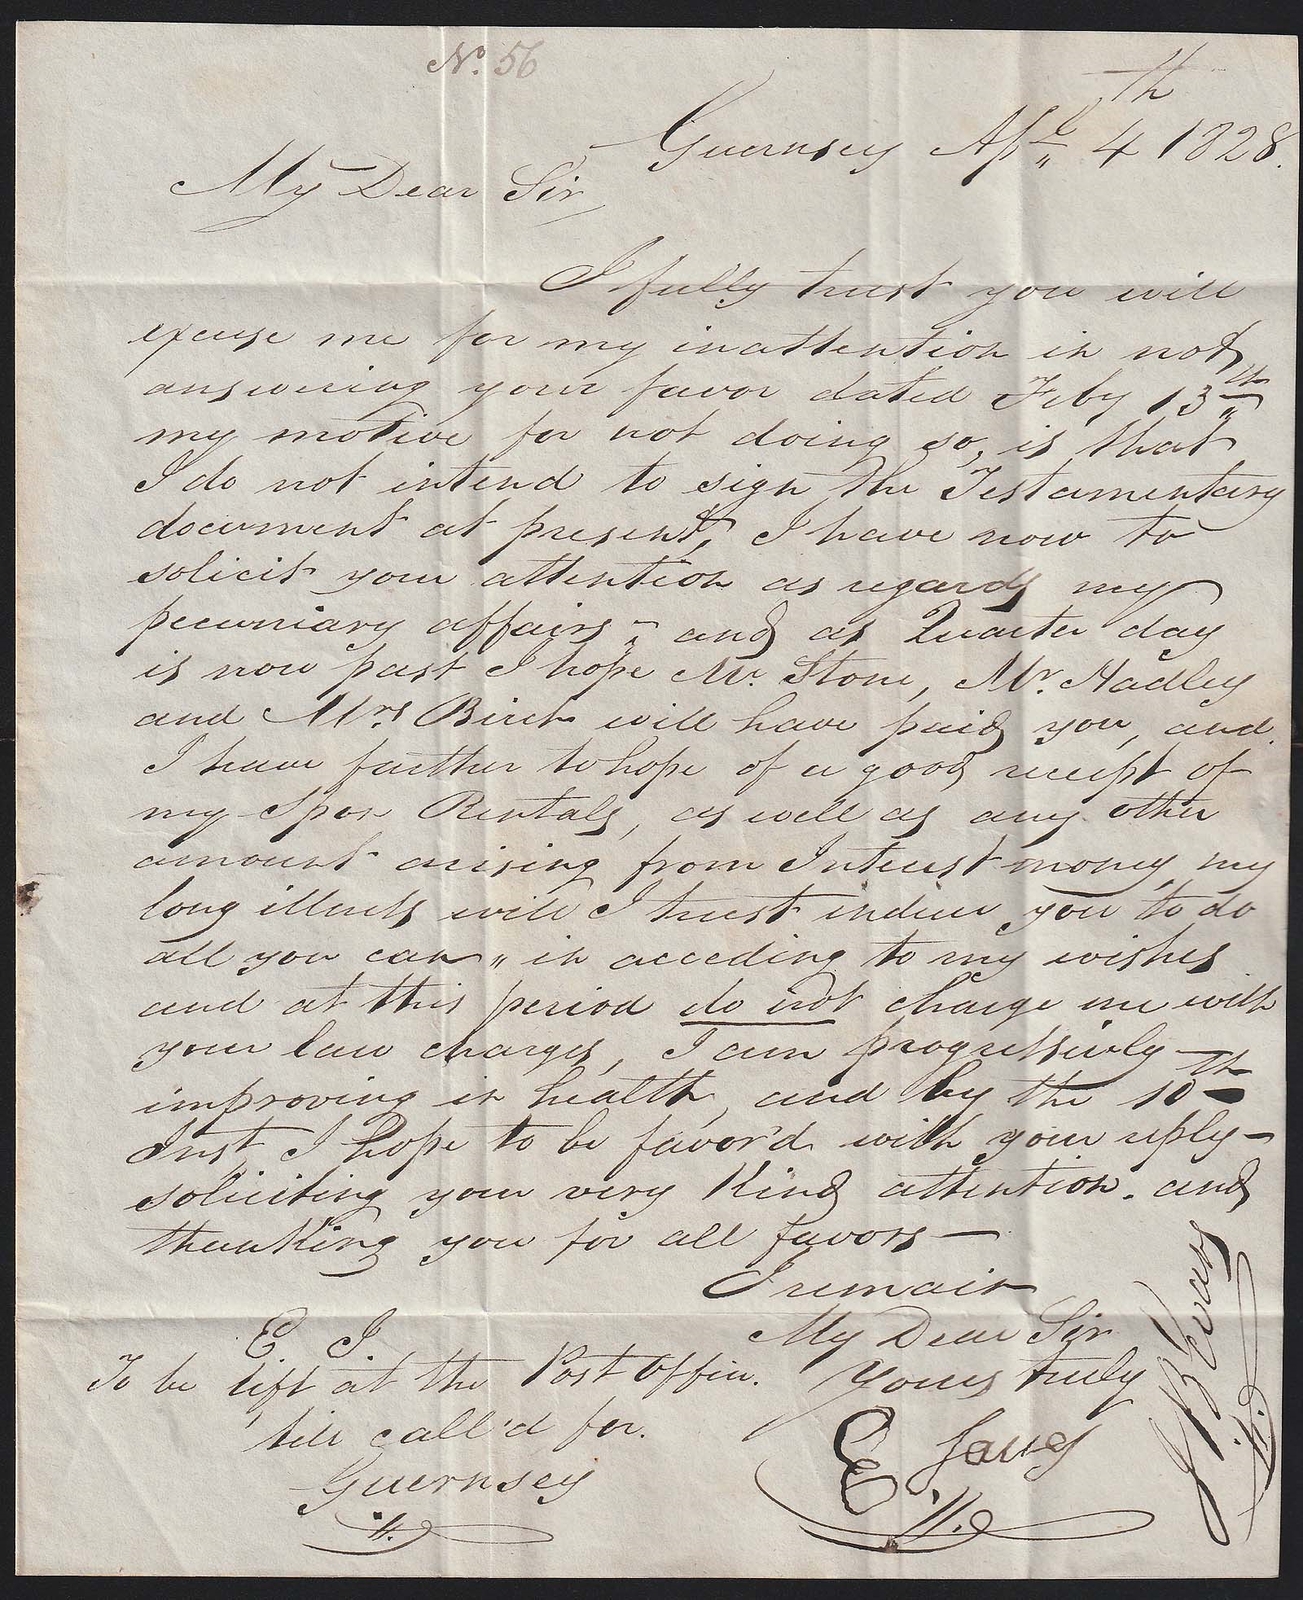 No. 56
Guernsey Apl 4th 1828.
My Dear Sir,
I fully trust you will
excuse me for my inattention in not
answering your favor dated Feby 13th
my motive for not doing so, is that
I do not intend to sign the Testamentary
document at present, I have now to
solicit your attention as regards my
pecuniary affairs - and as Quarter day
is now past I hope Mr. Stone, Mr. Hadley
and Mrs Birch will have paid you, and
I have farther to hope of a good receipt of
my Rentals, as well as any other
amount arising from Interest money, my
long illness will I trust induce you to do
all you can " in acceding to my wishes
and at this period do not charge me with
your law charges, I am progressively
improving in health, and by the 10th
Inst I hope to be favor'd with your reply -
soliciting your very Kind attention. and
thanking you for all favors -
I remain
My Dear Sir
Yours truly
E
E J.
To be left at the Post Office.
till call'd for.
Guernsey
J B Evans